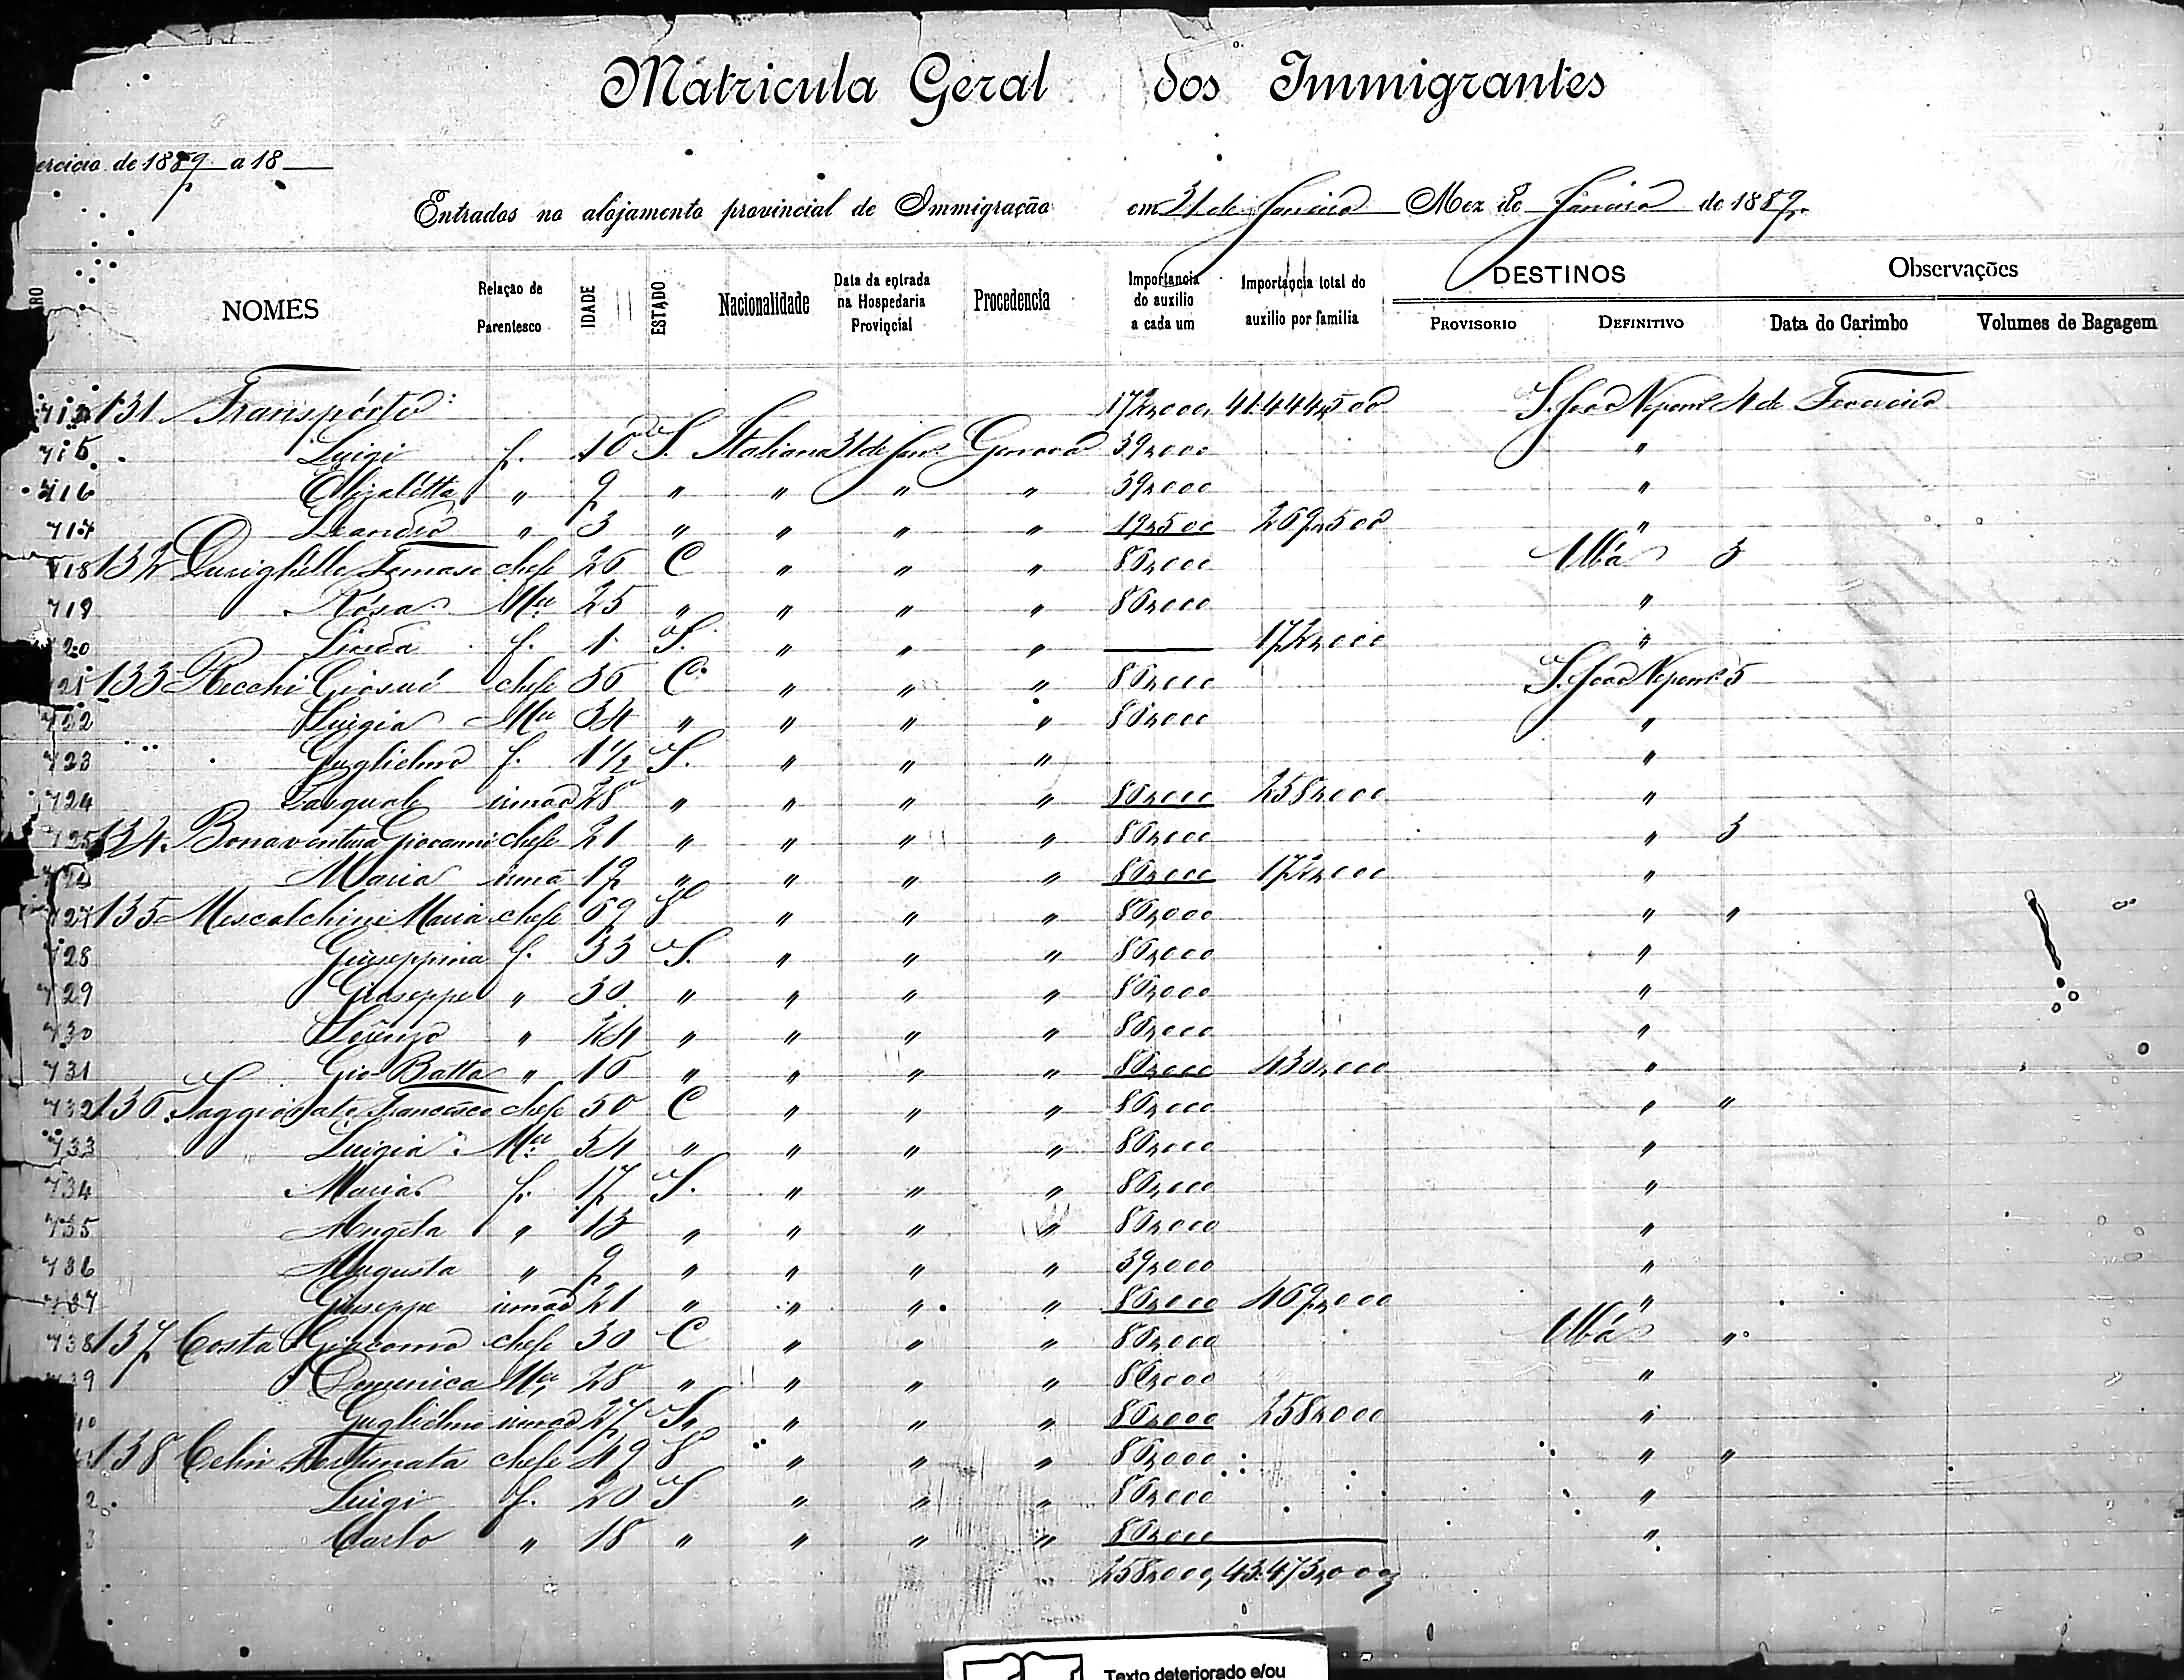 Matricula Geral dos Immigrantes
ercicio de 1889 a 18
Entrados no alojamento provincial de Immigração em 31 de Janeiro Mez de Janeiro de 1889
RO NOMES Relação de Parentesco IDADE ESTADO Nacionalidade Data da entrada na Hospedaria Provincial Procedencia Importancia do auxilio a cada um Importancia total do auxilio por familia DESTINOS PROVISORIO DEFINITIVO Data do Carimbo Observações Volumes de Bagagem
131 Transporte 172,000 41:444,500 S. João Nepom. 4 de Fevereiro
715 Luigi f. 10 S. Italiana 31 de Jan. Genova 39,000 "
716 Elisabetta " 9 " " " " 39,000 "
717 Leandro " 3 " " " " 19,500 269,500 "
718 132 Tomaso chefe 26 C " " " 86,000 Ubá 5
719 Rosa Mer 25 " " " " 86,000 "
20 f. 1 S. " " " — 172,000 "
21 133 Recchi Giosué chefe 36 C. " " " 86,000 S. João Nepom. 5
722 Luigia Mer 34 " " " " 86,000 "
723 Guglielmo f. 1½ S. " " " "
724 Pasquale irmão 28 " " " " 86,000 258,000 "
725 134. Bonaventura Giovanni chefe 21 " " " " 86,000 " 5
Maria irmã 19 " " " " 86,000 172,000 "
727 135 Mescalchini Maria chefe 69 " " " 86,000 " "
728 Giuseppina f. 33 S. " " " 86,000 "
729 Giuseppe " 30 " " " " 86,000 "
730 Lorenzo " 24 " " " " 86,000 "
731 Gio Batta " 16 " " " " 86,000 430,000 "
732 136. Francesco chefe 50 C " " " 86,000 " "
733 Luigia Mer 54 " " " " 86,000 "
734 Maria f. 17 S. " " " 86,000 "
735 Angela " 13 " " " " 86,000 "
736 Augusta " 9 " " " " 39,000 "
737 Giuseppe irmão 21 " " " " 86,000 469,000 "
738 137 Costa Giacomo chefe 30 C " " " 86,000 Ubá "
39 Domenica Mer 28 " " " " 86,000 "
40 Guglielmo irmão 27 S. " " " 86,000 258,000 "
138 Celin Fortunata chefe 49 " " " 86,000 " "
2 Luigi f. 20 S " " " 86,000 "
3 Carlo " 18 " " " " 86,000 "
258,000, 43:473,000
Texto deteriorado e/ou